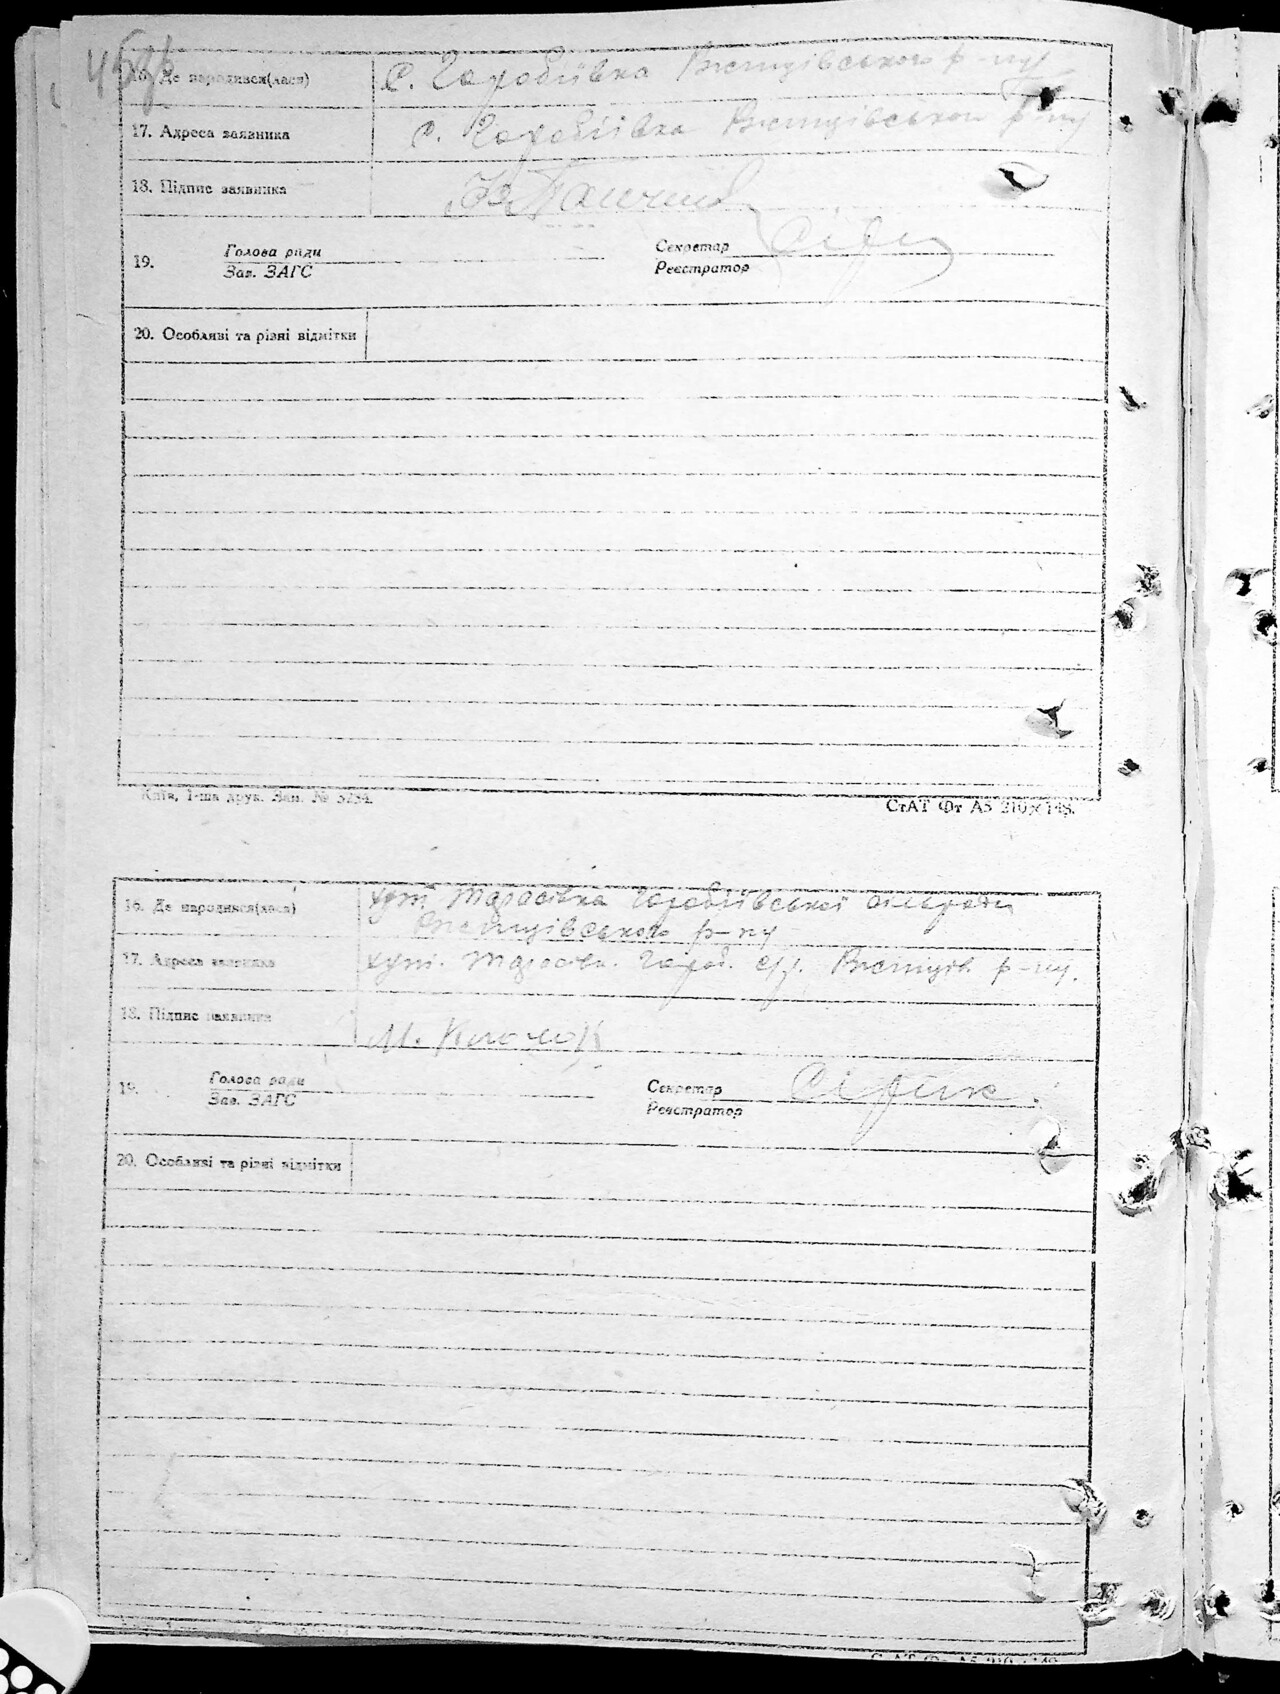 45зв
16. Де народився(лася) с. Горобіївка Вистуівського р-ну
17. Адреса заявника с. Горобіївка р-ну
18. Підпис заявника
19. Голова ради Секретар Сірик
Зав. ЗАГС Реєстратор
20. Особливі та різні відмітки
Київ, 1-ша друк. Зам. № 5254.
СтАТ Фт А5 210×148.
16. Де народився(лася) хут. Тарасівка Горобіївської сільради
р-ну
17. Адреса заявника хут. Тарасівка. Гороб. с/р. р-ну.
18. Підпис заявника М.
19. Голова ради Секретар Сірик.
Зав. ЗАГС Реєстратор
20. Особливі та різні відмітки